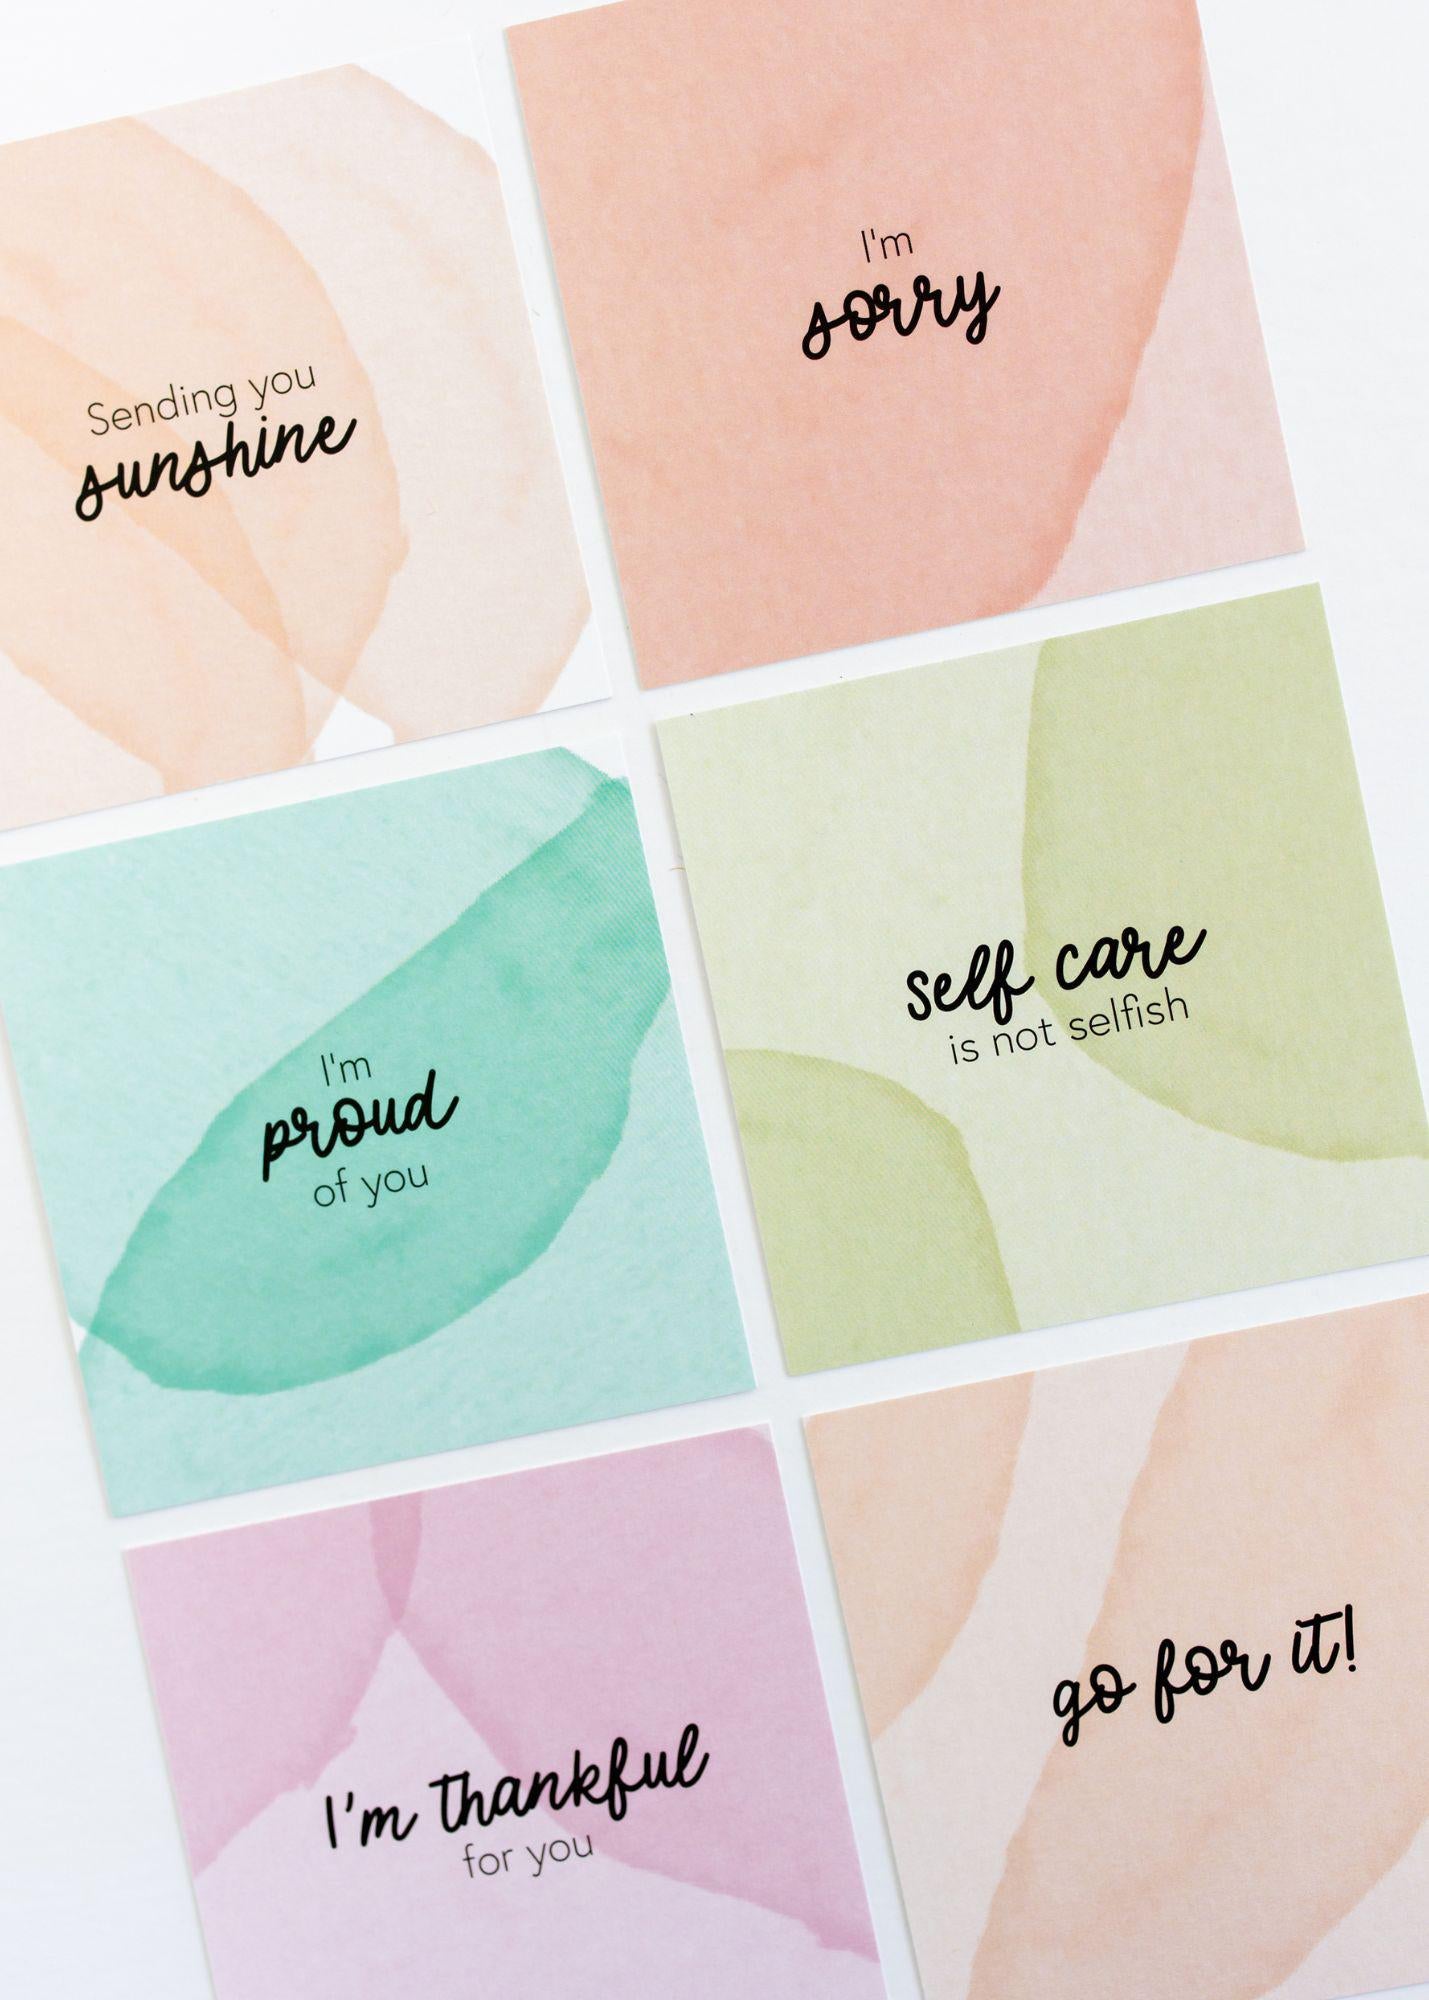 Sending you
sunshine
I'm
sorry
I'm
proud
of you
self care
is not selfish
I'm thankful
for you
go for it!